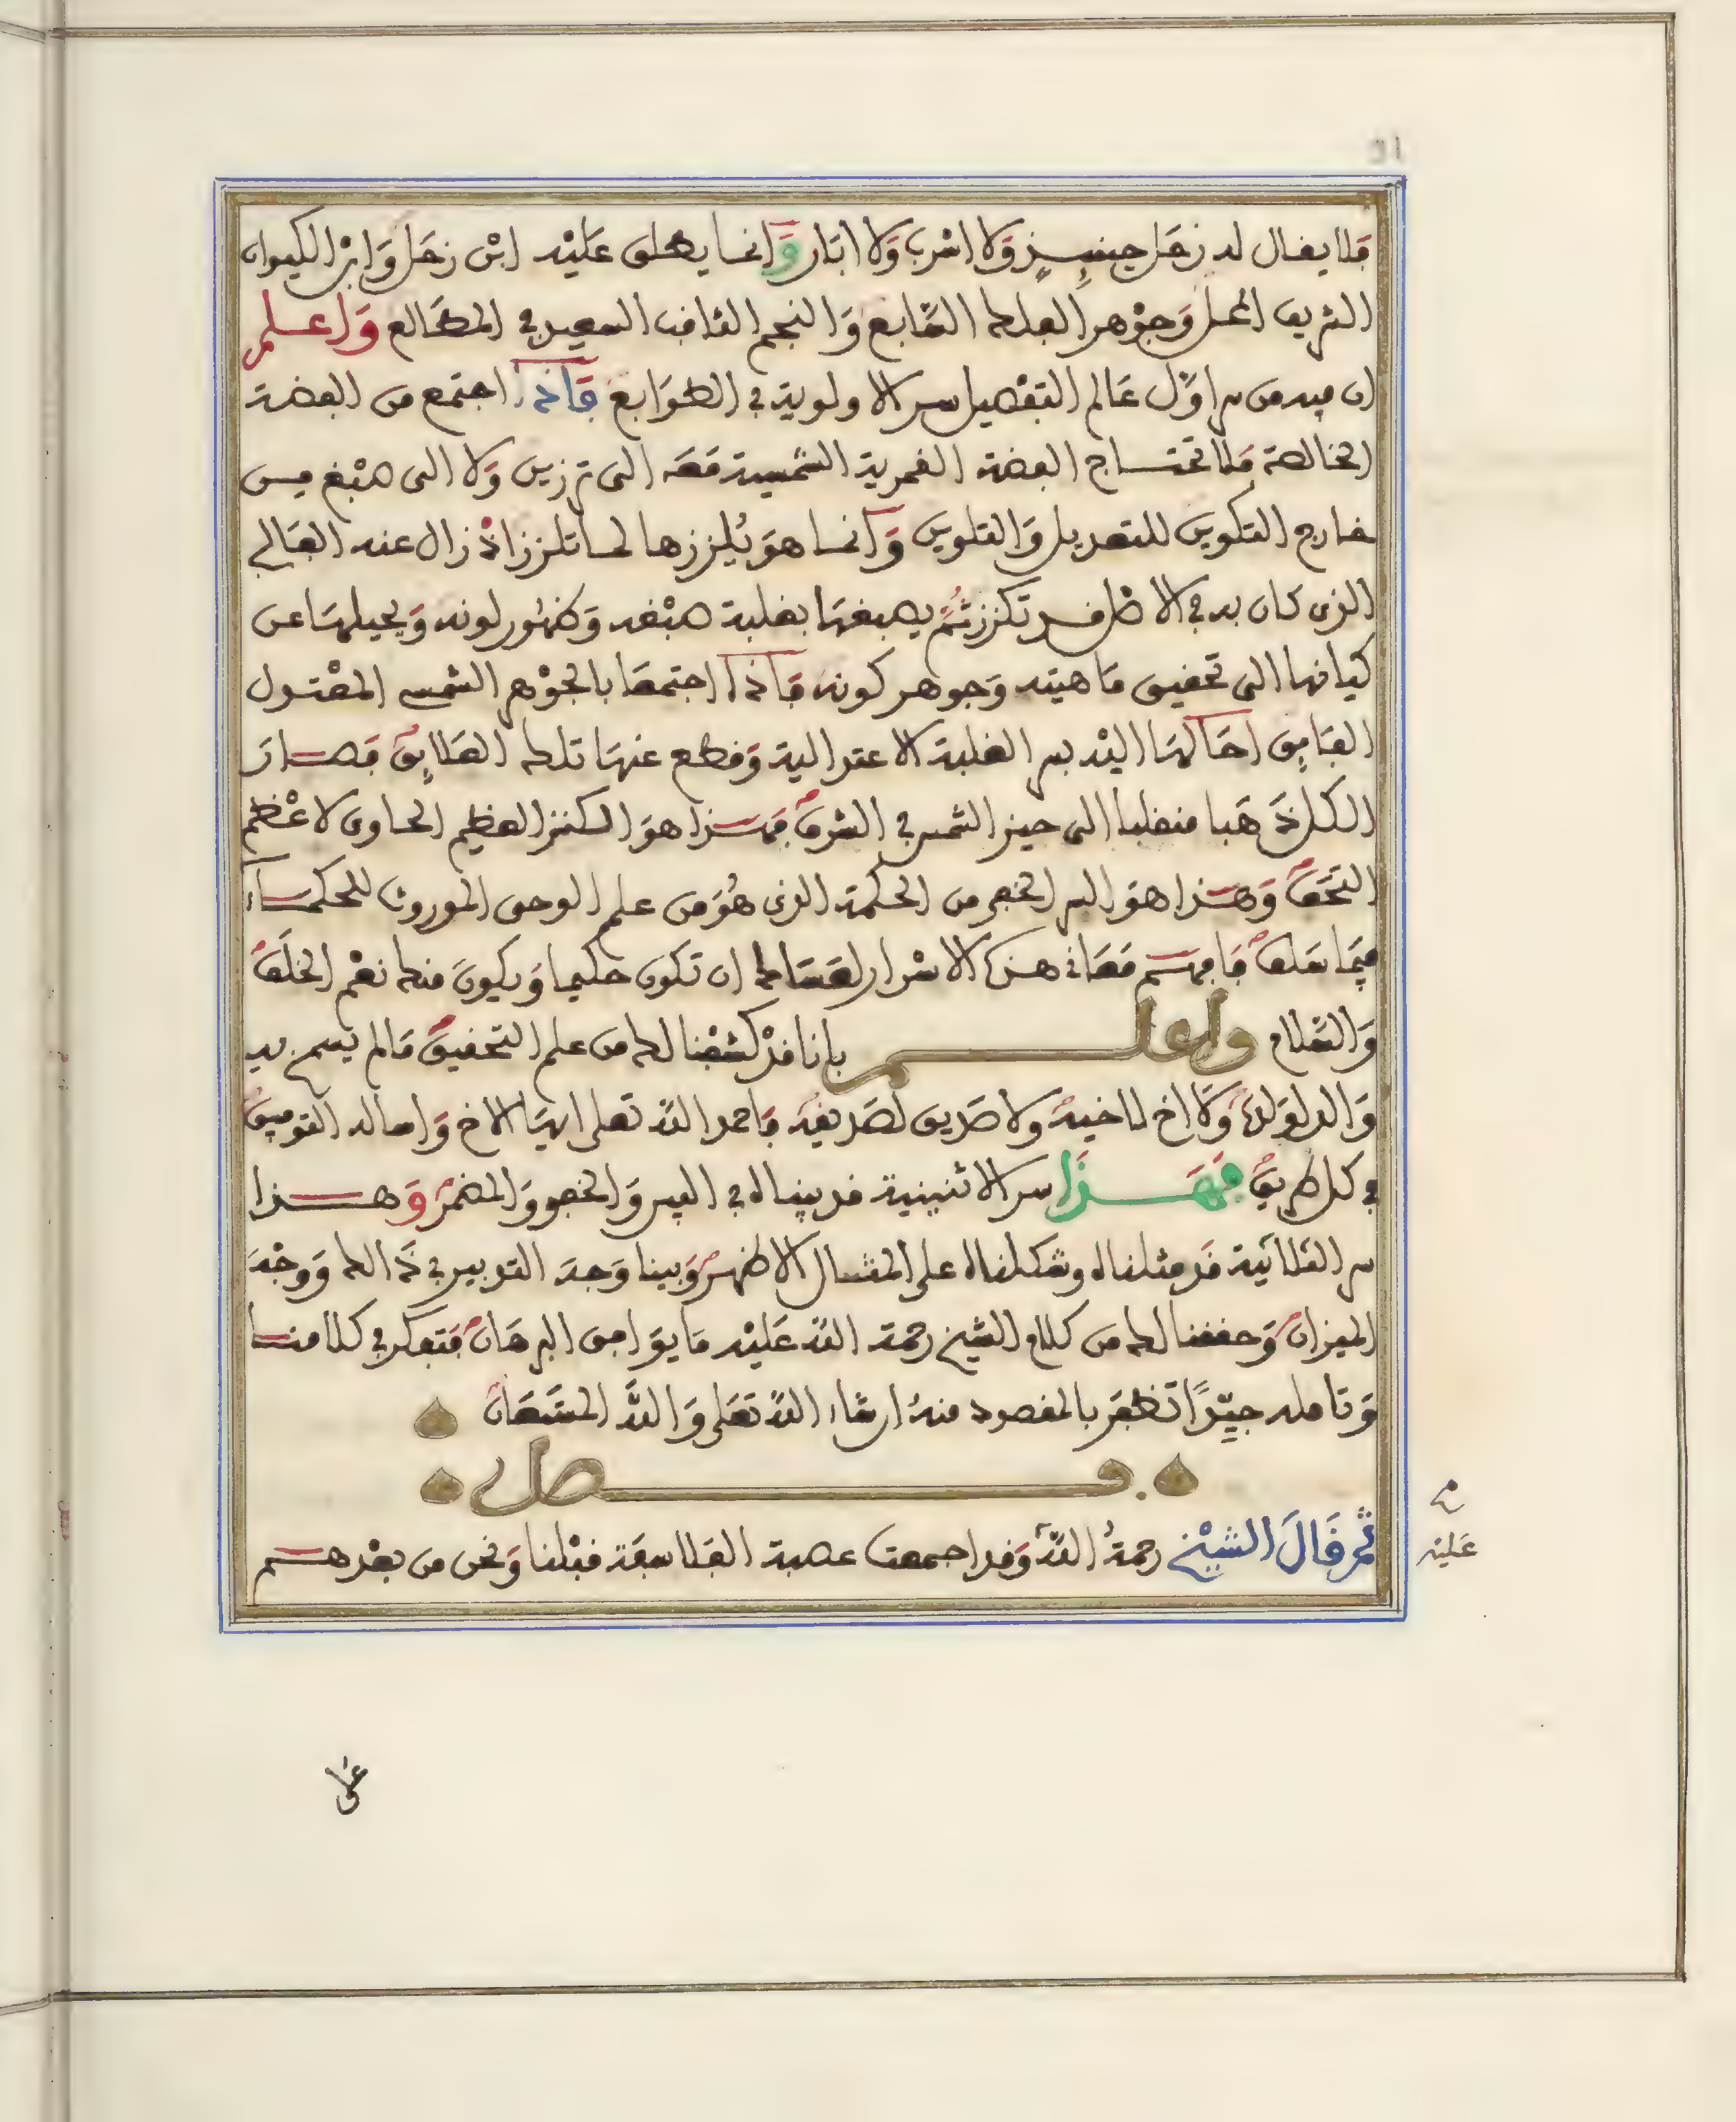 فلا يقال له زحل حينئذ ولا اسرب ولا ابار وانما يطلق عليه ابن زحل وابن الكيوان
الشريف المحل وجوهر الفلك السابع والنجم الثاقب السعيد في المطالع واعلم
ان فيه من سر اول عالم التفصيل سر الاولوية في الطوابع فاذا اجتمع من الفضة
الخالصة فلا تحتاج الفضة القمرية الشمسية معه الى ترزين ولا الى صبغ من
خارج التكوين للتعديل والتلوين وانما هو يلززها لما تلزز اذ زال عنه
الذى كان به في الاصل تكزز ثم يصبغها بغلبة صبغه وظهور لونه ويحيلها عن
كيانها الى تحقيق ماهيته وجوهر كونه فاذا اجتمعا بالجوهر الشمسي المقتول
الفايق احالها اليه بسر الغلبة الاعتدالية وقطع عنها تلك العلايق فصار
الكل ذهبا منقلبا الى حيز الشمس في الشرف فهذا هو الكنز العظيم الحاوى لاعظم
التحف وهذا هو السر الخفى من الحكمة الذى هو من علم الوحى الموروث للحكماء
فيما سلف فافهم معانى هذه الاسرار لعساك ان تكون حكيما ويكون منك نعم الخلف
والسلام واعلم بانا قد كشفنا لك من علم التحقيق ما لم يسمح به
والد لولده ولا اخ لاخيه ولا صديق لصديقه فاحمد الله تعلى ايها الاخ واساله التوفيق
في كل طريق فهذا سر الاثنينية قد بيناه في السر والخفو والمضمر وهذا
سر الثلاثية قد مثلناه وشكلناه على المثال الاظهر وبينا وجه التدبير في ذالك ووجه
الميزان وحققنا لك من كلام الشيخ رحمة الله عليه ما يوافق البرهان فتفكر في كلامنا
وتامله جيدا تظفر بالمقصود منه ان شاء الله تعلى والله المستعان
فصل
ثم قال الشيخ رحمة الله وقد اجمعت عصبة الفلاسفة قبلنا ونحن من بعدهم
عليه
على